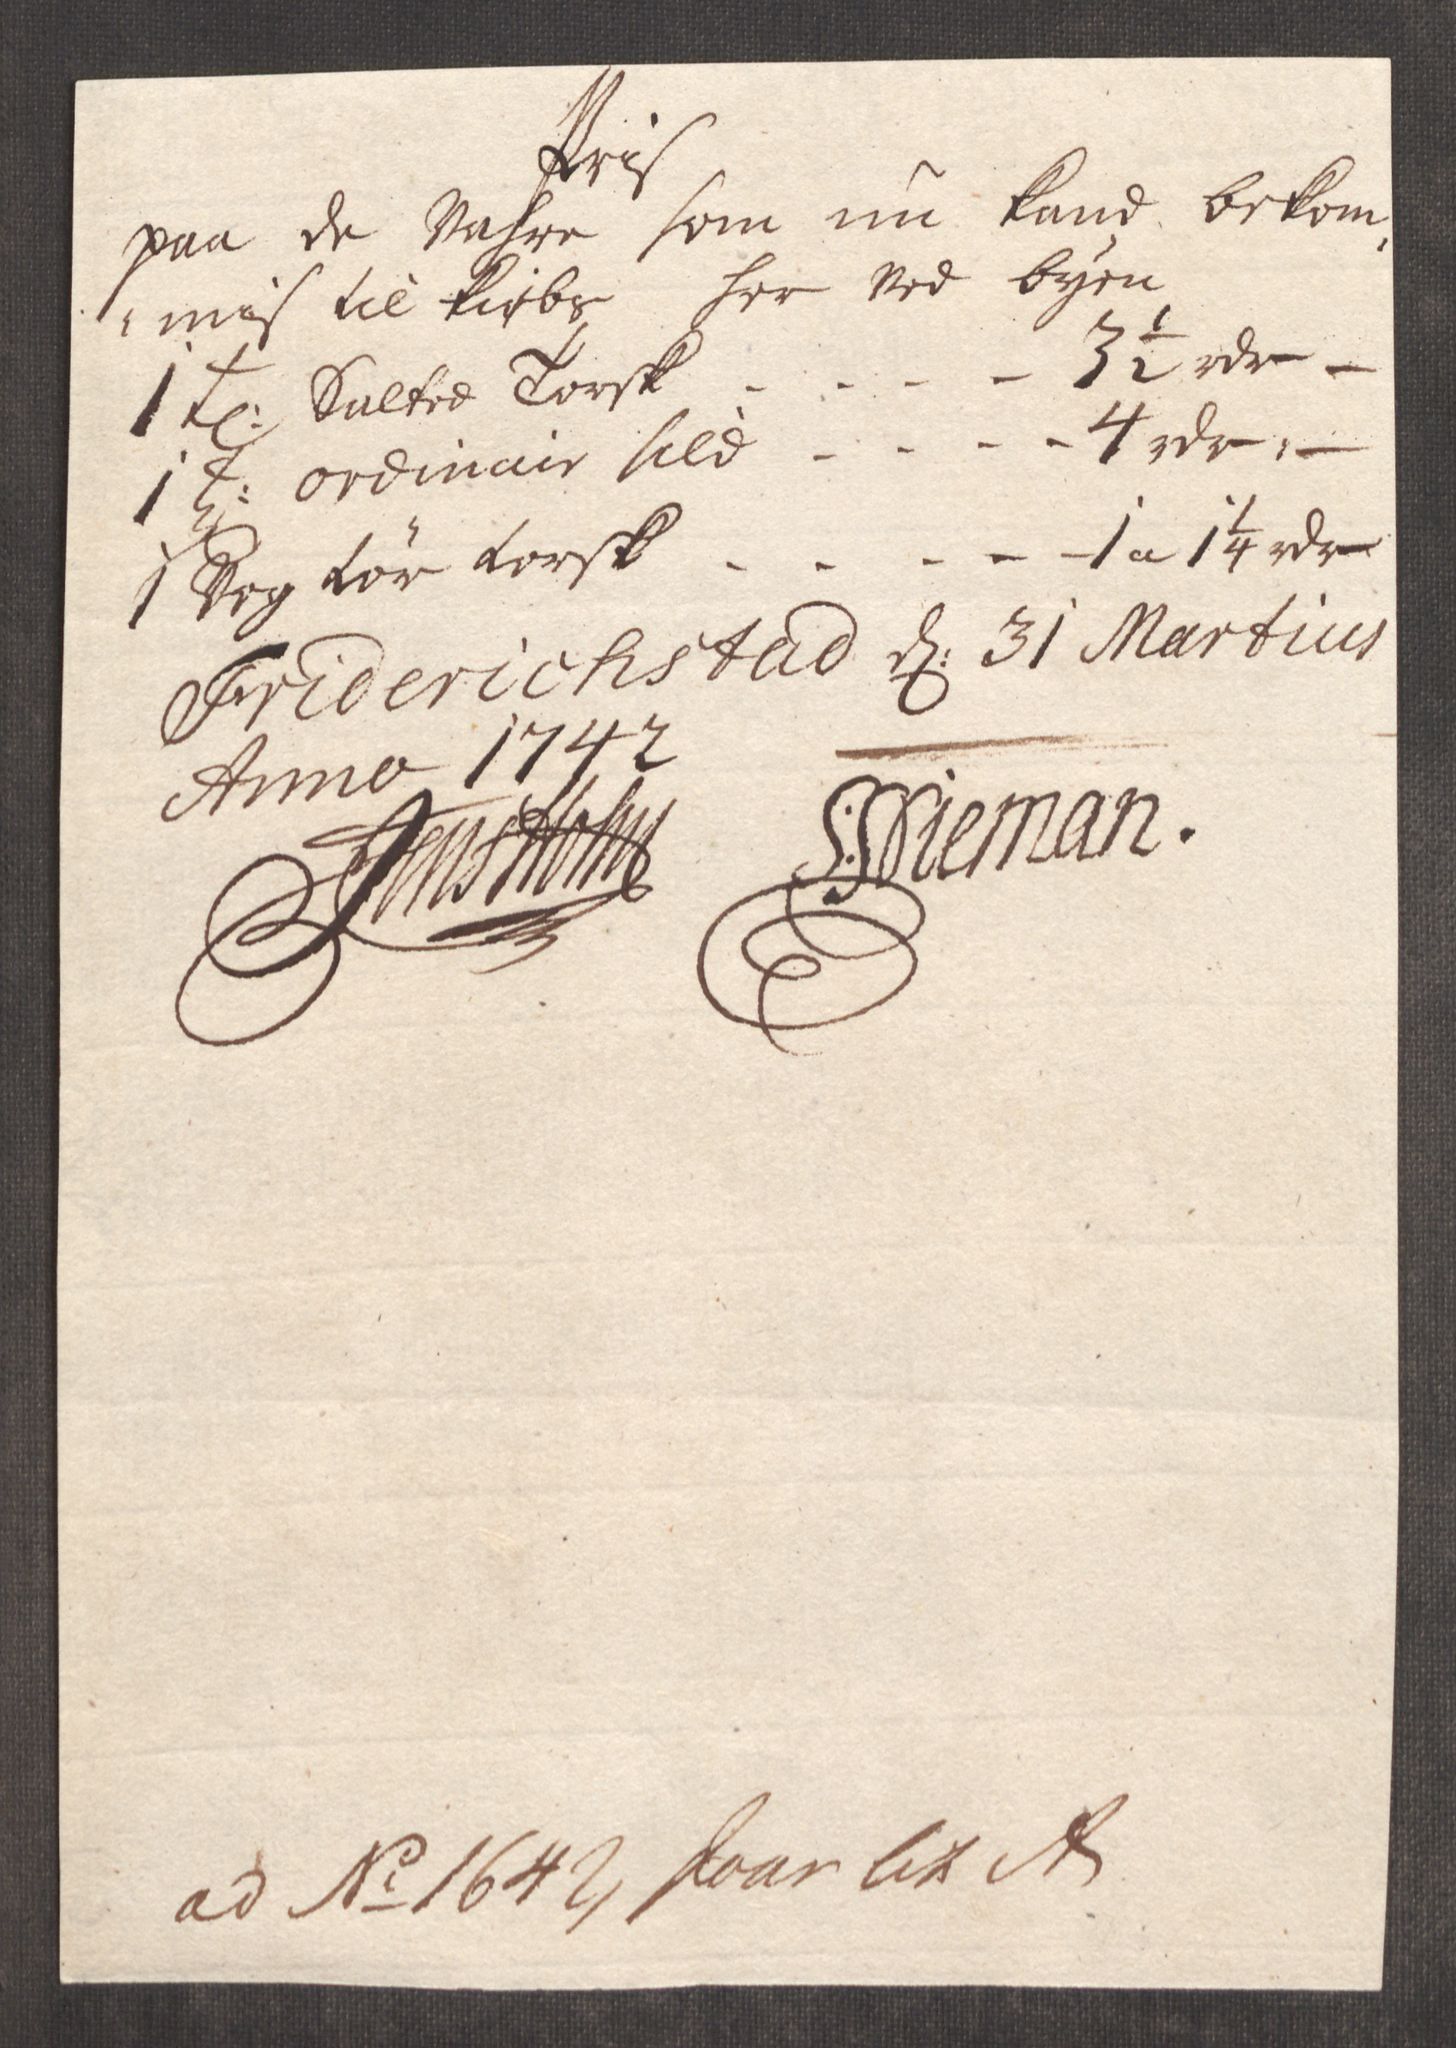 Priis
paa de Vahre som nu kand bekom,
,mis til kiøbs her ved byen
1 tl: Salted Torsk - - - - 3 1/2 rdr -
1 t: ordinair sild - - - - 4 rdr , -
1 Vog tör torsk - - - - - 1 a 1 1/4 rdr
Friderichstad d: 31 Martius
Anno 1742
Jens Holm S: Wieman.
ad No 1642, svar lit A